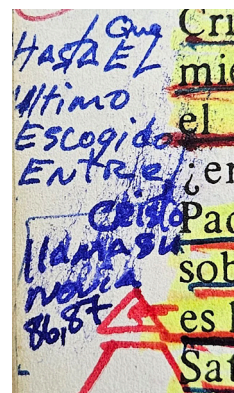 Que
HASTA EL
Ultimo
Escogido
ENTRE
CRISTO
llama su
NOVIA
86,87
Cri
mie
el
¿en
Pad
sob
es l
Sat